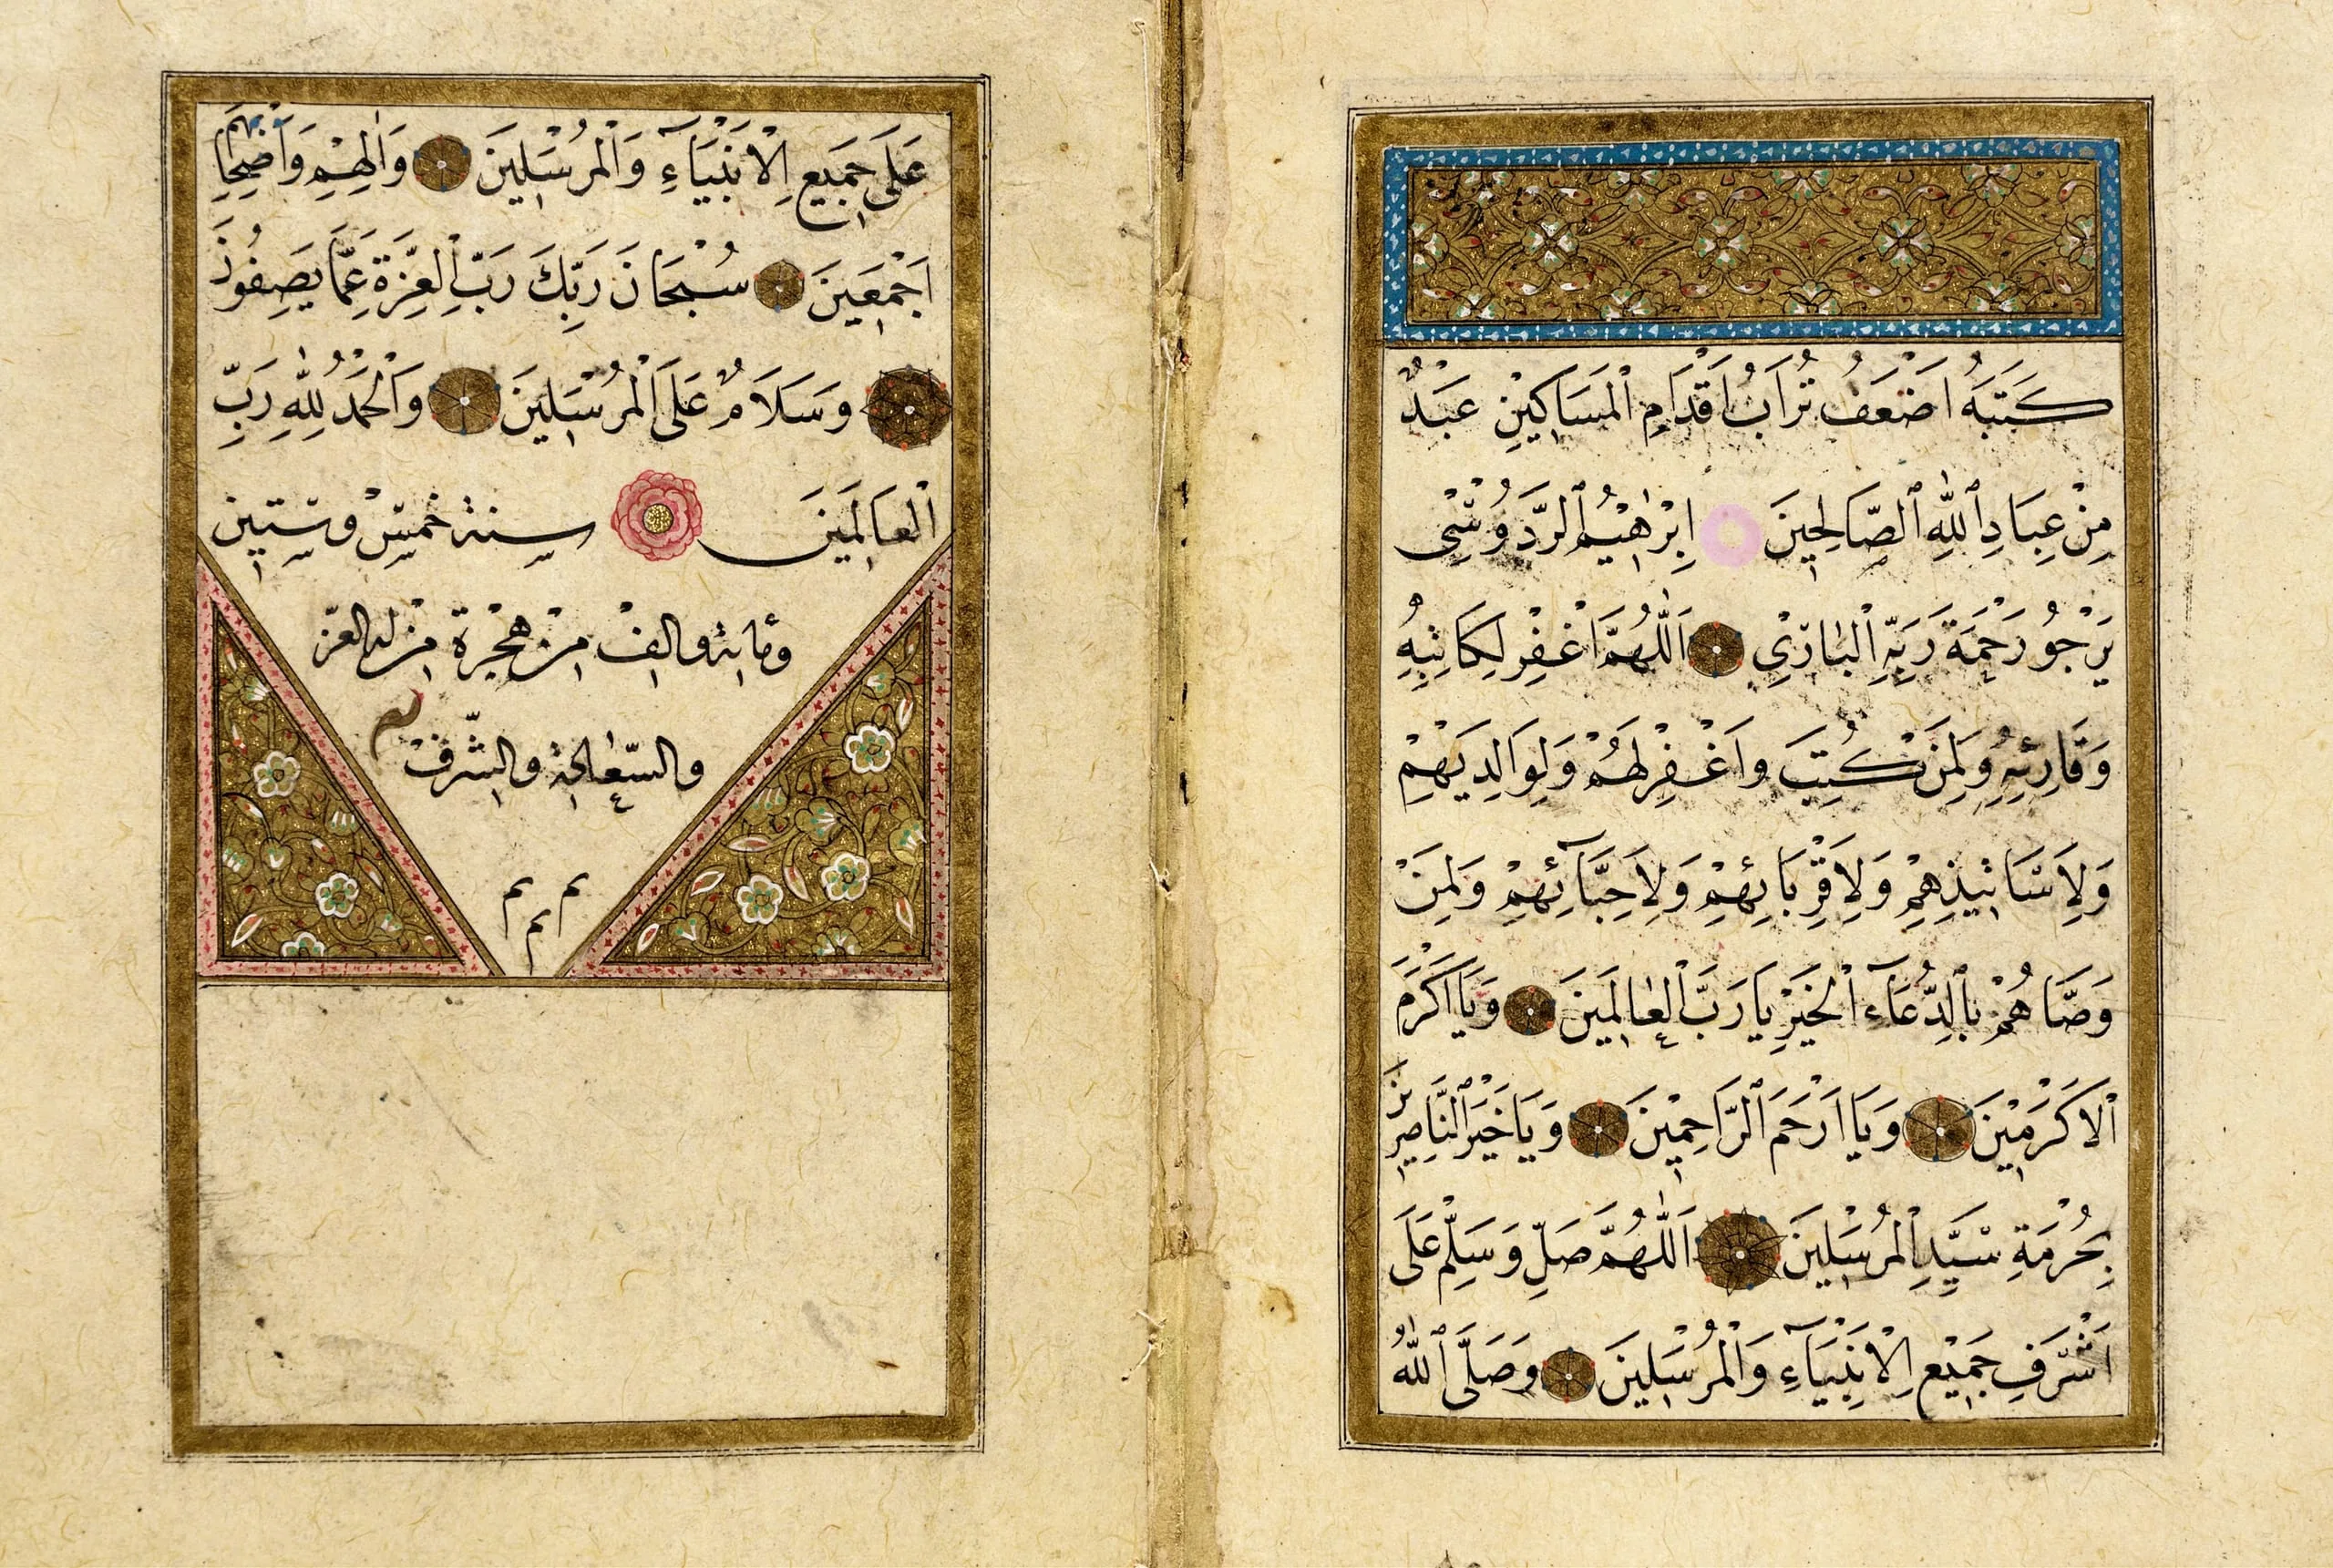 كَتَبَهُ اَضْعَفُ تُرَابُ اَقْدَامِ الْمَسَاكِيْنِ عَبْدٌ
مِنْ عِبَادِ ٱللّٰهِ ٱلصَّالِحِينَ اِبْرٰهِيْمُ ٱلرَّدُوسِّى
يَرْجُو رَحْمَةَ رَبِّهِ الْبَارِيْ اَللّٰهُمَّ اغْفِرْ لِكَاتِبِهِ
وَقَارِئِهِ وَلِمَنْ كُتِبَ وَاغْفِرْلَهُمْ وَلِوَالِدَيْهِمْ
وَلِاَسَاتِيذِهِمْ وَلِاَقْرِبَائِهِمْ وَلِاَحِبَّآئِهِمْ وَلِمَنْ
وَصَّاهُمْ بِالدُّعَآءِ الْخَيْرِ يَا رَبَّ الْعَالَمِينَ وَيَا اَكْرَمَ
الْاَكْرَمِيْنَ وَيَا اَرْحَمَ ٱلرَّاحِمِيْنَ وَيَا خَيْرَ ٱلنَّاصِرِينَ
بِحُرْمَةِ سَيِّدِ الْمُرْسَلِينَ اَللّٰهُمَّ صَلِّ وَسَلِّمْ عَلَى
اَشْرَفِ جَمِيْعِ الْاَنْبِيَآءِ وَالْمُرْسَلِينَ وَصَلَّى ٱللّٰهُ
عَلَى جَمِيعِ الْاَنْبِيَآءِ وَالْمُرْسَلِينَ وَاٰلِهِمْ وَاَصْحَابِهِمْ
اَجْمَعِينَ سُبْحَانَ رَبِّكَ رَبِّ الْعِزَّةِ عَمَّا يَصِفُونَ
وَسَلَامٌ عَلَى الْمُرْسَلِينَ وَالْحَمْدُ لِلّٰهِ رَبِّ
الْعَالَمِينَ سنة خمسْ وستين
ومائة والفْ منْ هجْرة منْ له العزّ
والسّعادة والشّرفْ
م م م